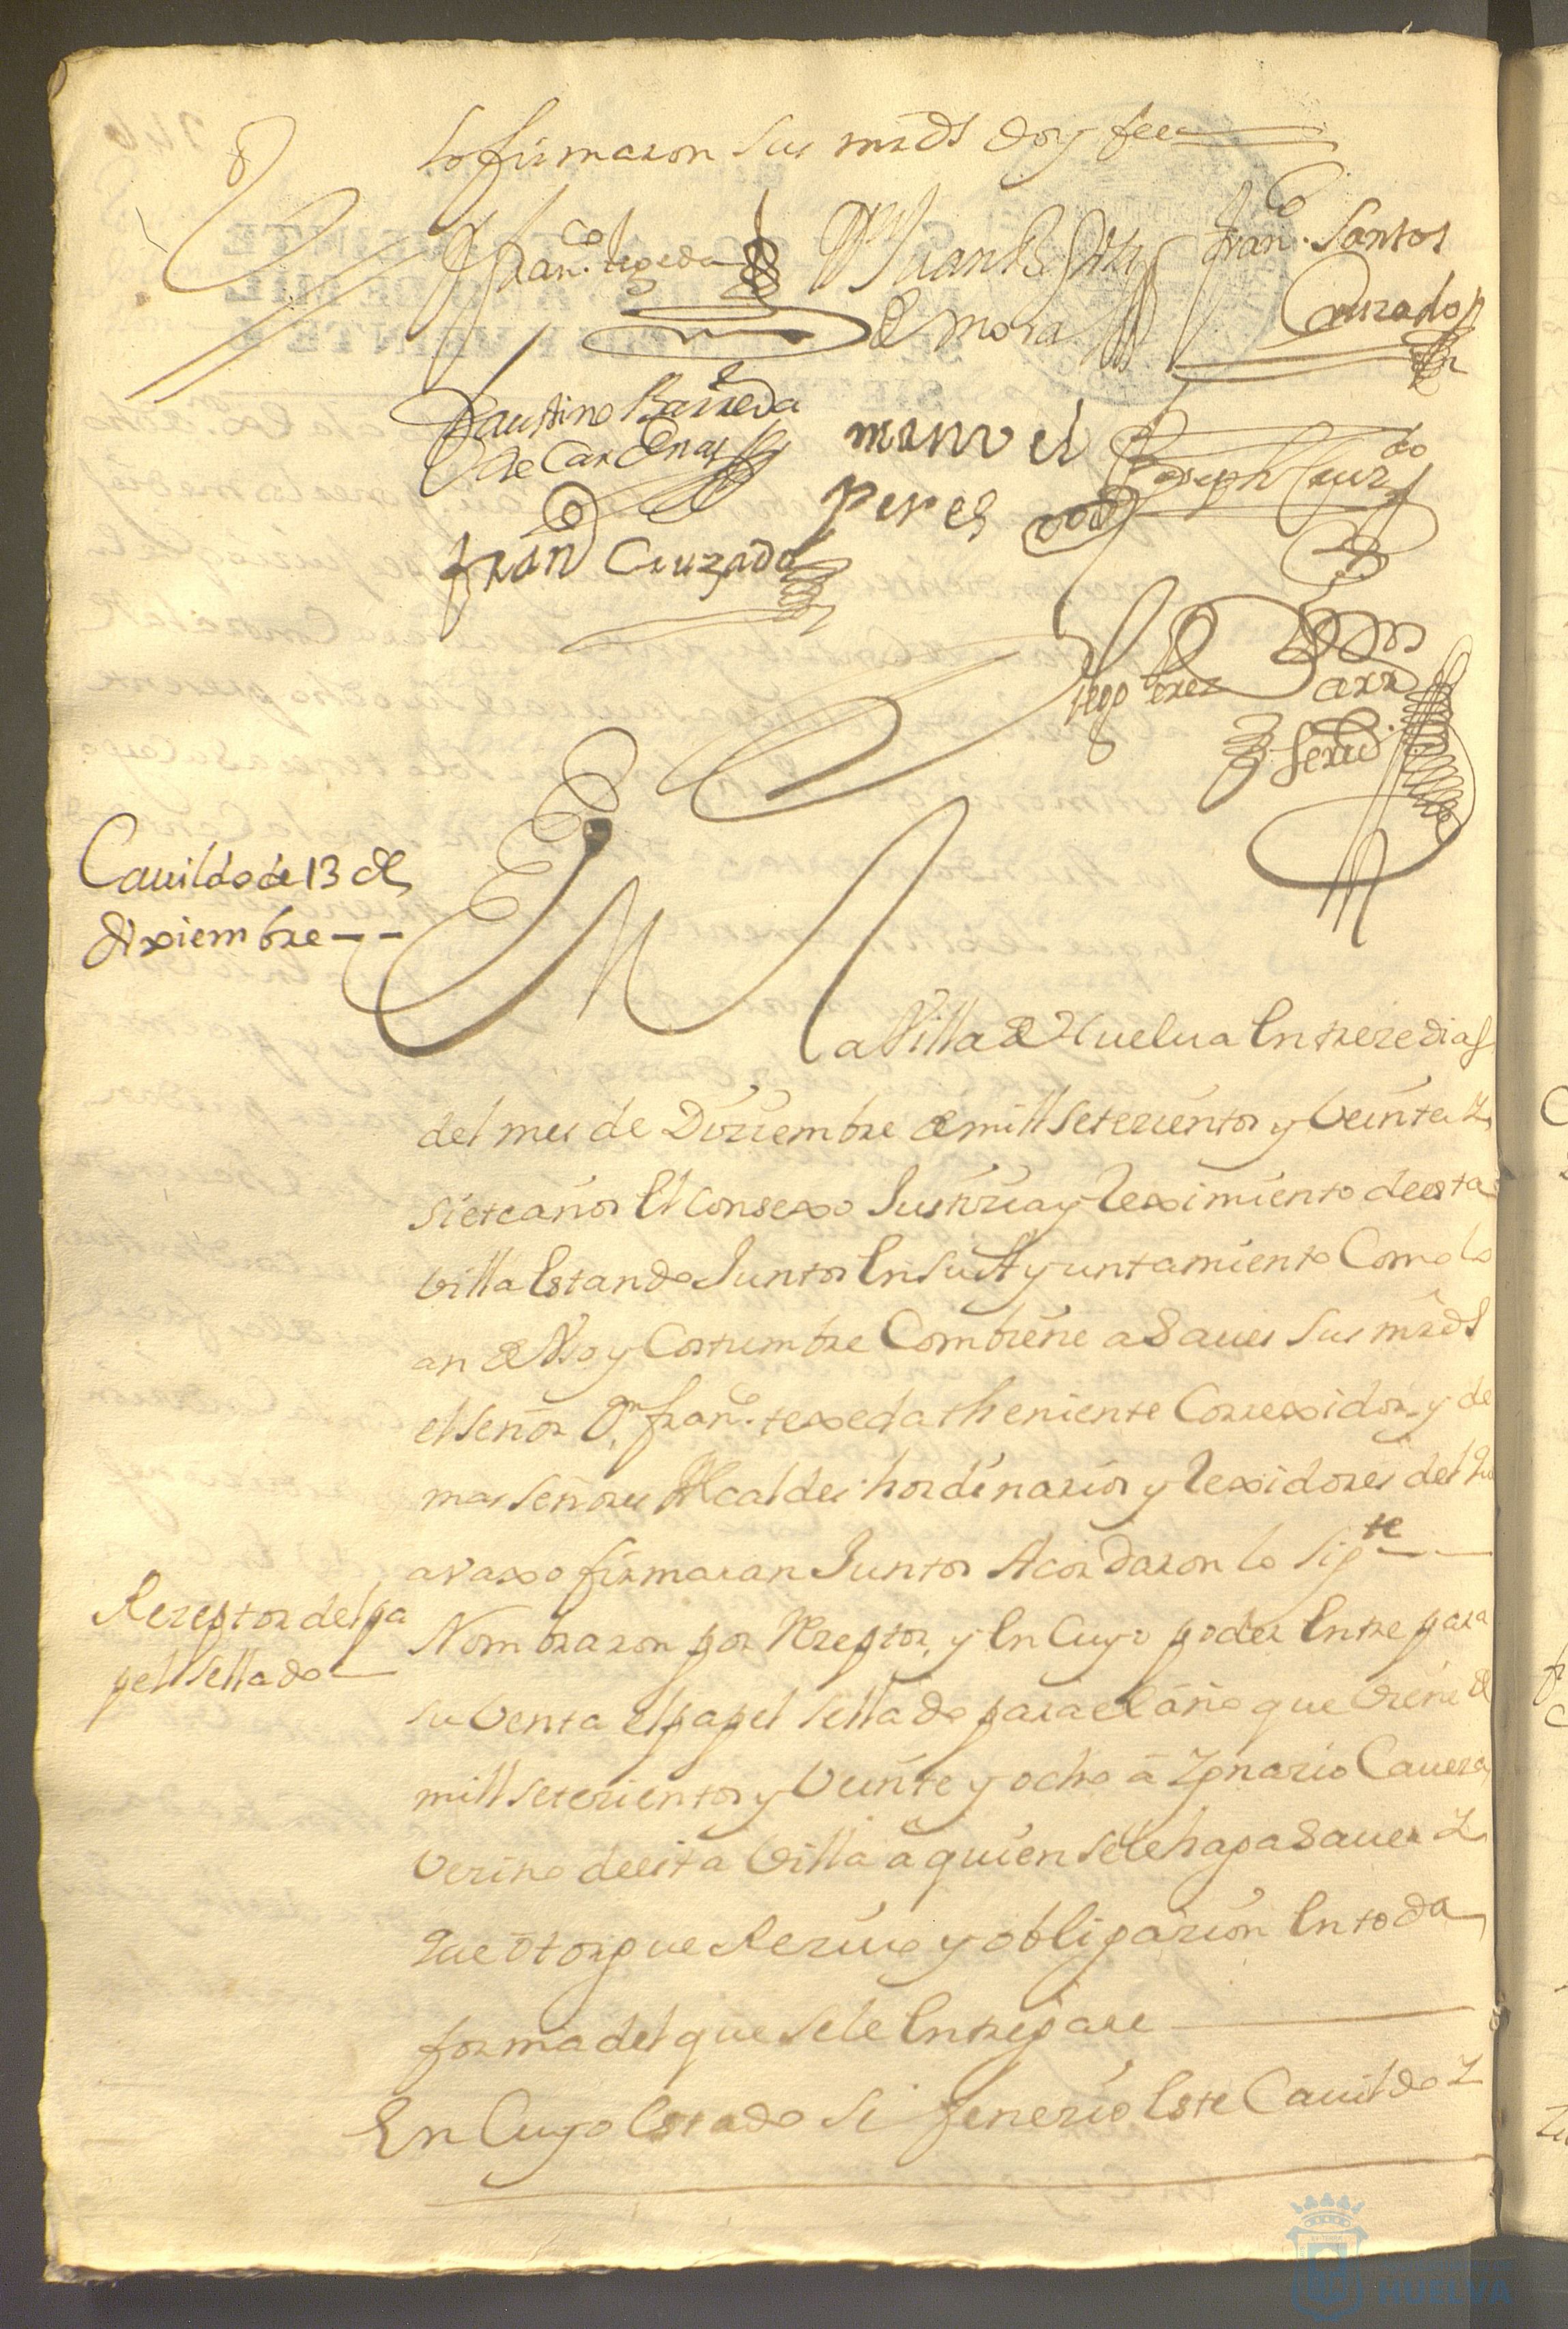 lo firmaron sus mrds doy fee
Franco. texeda Juan Bta Fran.co Santos
de mora Cruzado
Faustino Barreda
de Cardenas manuel Joseph Cruzdo
peres
Franco Cruzado
Diego Perez
Cauildo de 13 de
dixiembre--
En
la Villa de Huelua en treze dias
del mes de Diziembre de mill setezientos y veinte y
siete años el conse xo Justizia y reximiento de esta
villa estando Juntos en su Ayuntamiento Como lo
an de Vso y Costumbre Combiene a Sauer sus mrds
el señor Dn. franco. texeda theniente Correxidor y de
mas señores Alcaldes hordinarios y rexidores del que
avaxo firmaran Juntos Acordaron lo sigte
Rezeptor del pa
pel sellado
Nombraron por Rezeptor, y en Cuyo poder entre para
su venta el papel sellado para el año que viene de
mill setezientos y veinte y ocho â Ygnazio Cauera
vezino de esta villa a quien se le haga Sauer y
que otorgue Reziuo y obligazion en toda
forma del que se le entregare
En Cuyo estado se fenezio este Cauildo y
HUELVA